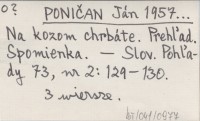 o?
PONIČAN Ján 1957...
Na kozom chrbáte. Prehľad.
Spomienka. — Slov. Pohľa-
dy 73, nr 2: 129–130.
3 wiersze.